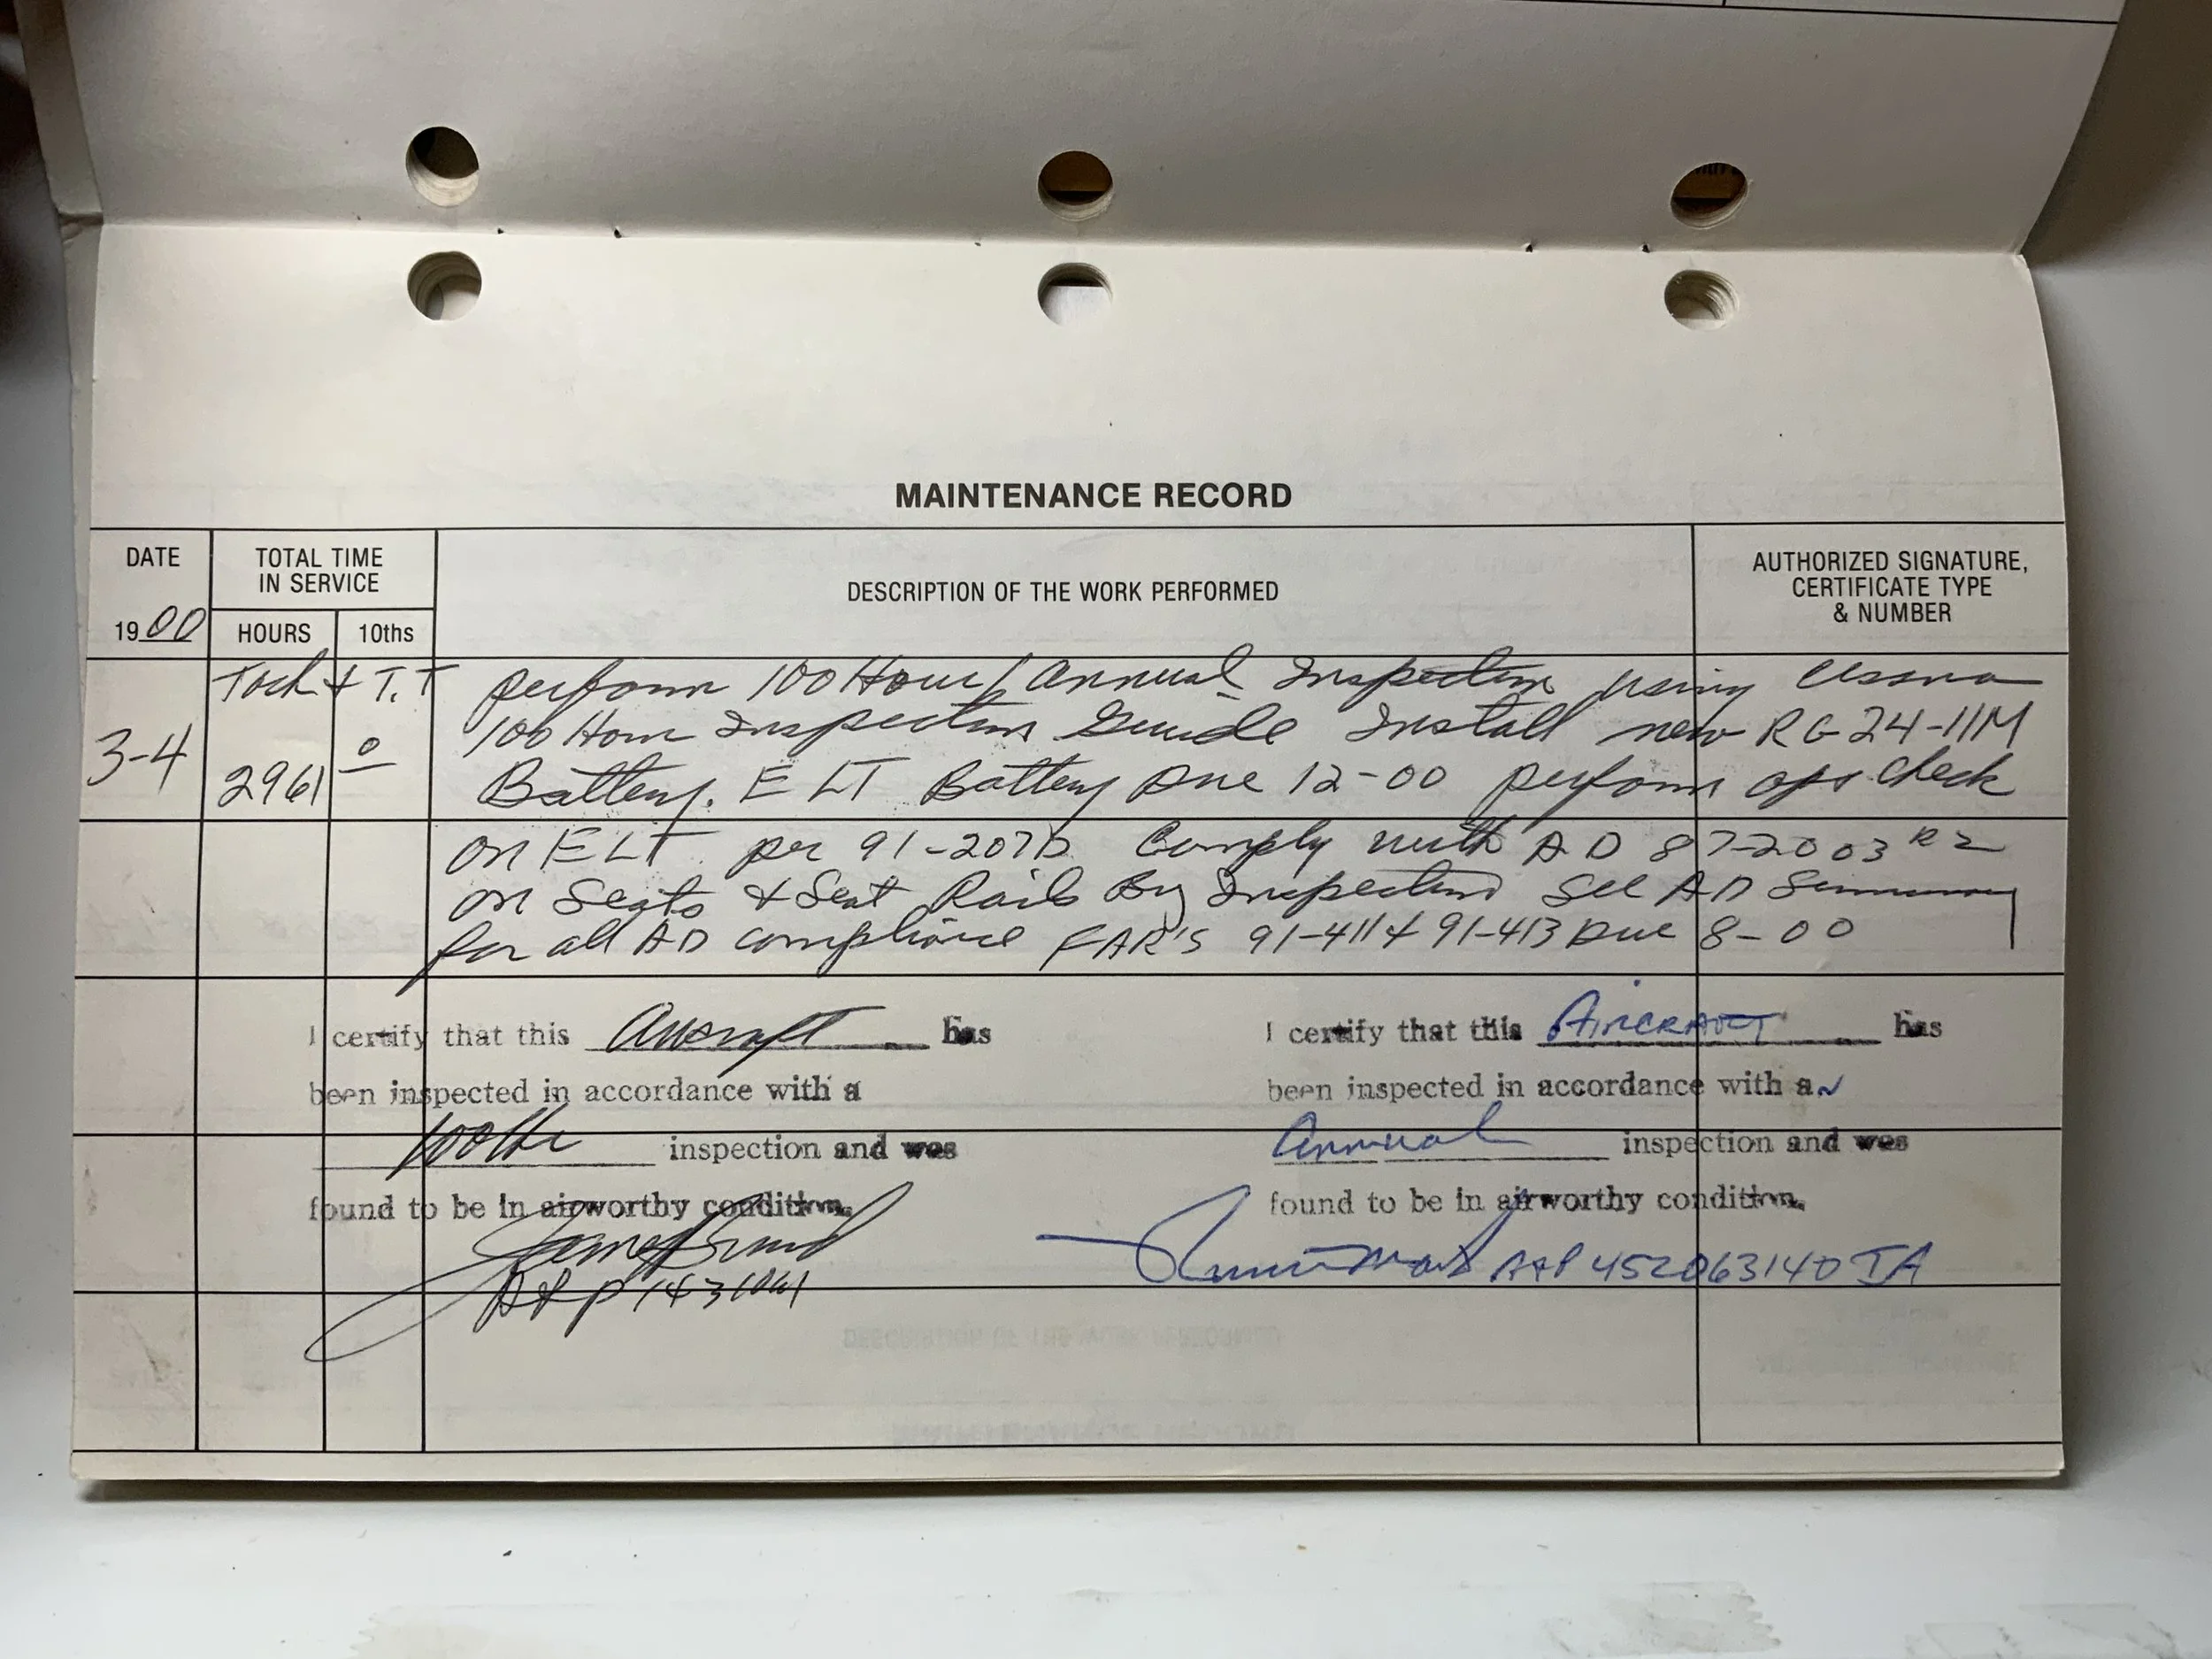 MAINTENANCE RECORD
DATE
TOTAL TIME
IN SERVICE
DESCRIPTION OF THE WORK PERFORMED
AUTHORIZED SIGNATURE,
CERTIFICATE TYPE
& NUMBER
19 00
HOURS
10ths
Tach + T.T perform 100 Hour / Annual Inspection using Cessna
100 Hour Inspection Guide Install new RG 24-11M
3-4 2961 0 Battery. ELT Battery Due 12-00 perform ops check
on ELT per 91-207D Comply with AD 87-2003 R2
on Seats & Seat Rails By Inspection See AD Summary
for all AD compliance FAR'S 91-411 & 91-413 Due 8-00
I certify that this Aircraft has
been inspected in accordance with a
100Hr inspection and was
found to be in airworthy condition.
A&P 1431061
I certify that this AIRCRAFT has
been inspected in accordance with an
Annual inspection and was
found to be in airworthy condition.
A&P 452063140 IA